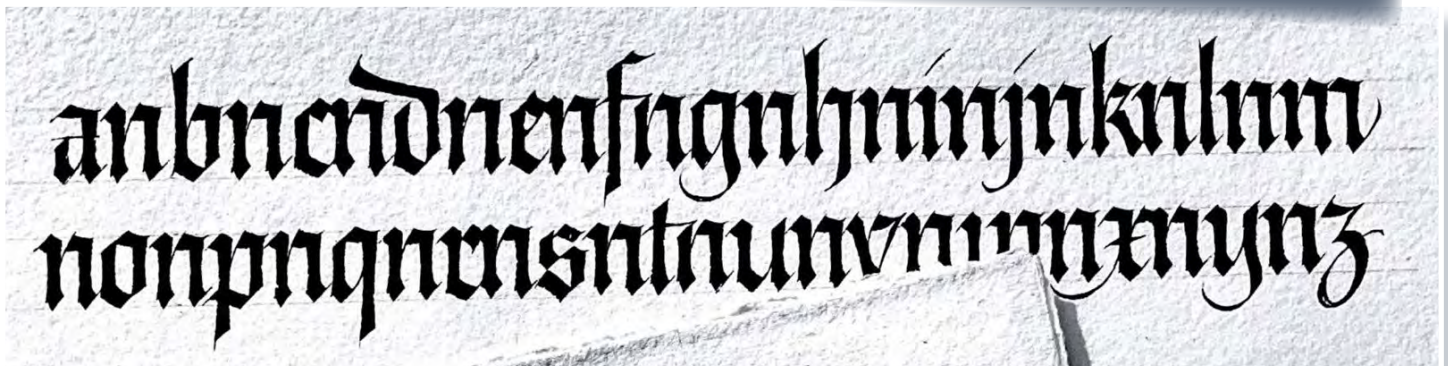 anbncndnenfngnhninjnknlnm
nonpnqnrnsntnunvnwnxnynz